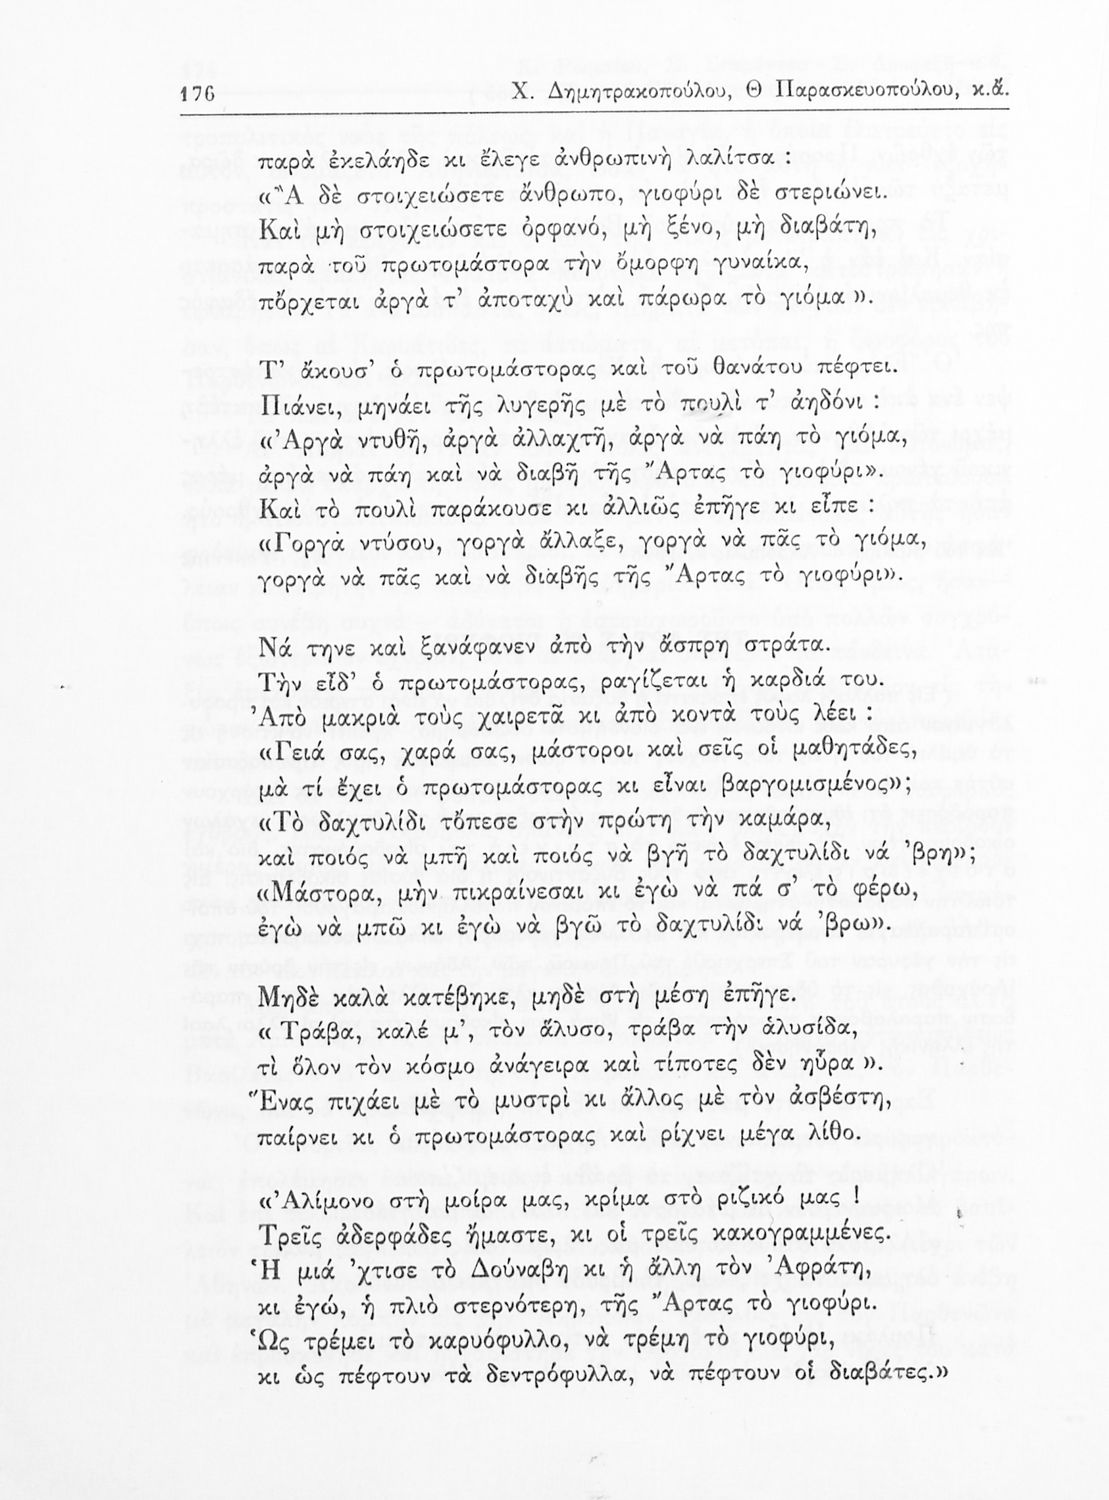 176
Χ. Δημητρακοπούλου, Θ Παρασκευοπούλου, κ.ἄ.
παρὰ ἐκελάηδε κι ἔλεγε ἀνθρωπινὴ λαλίτσα :
«Ἂ δὲ στοιχειώσετε ἄνθρωπο, γιοφύρι δὲ στεριώνει.
Καὶ μὴ στοιχειώσετε ὀρφανό, μὴ ξένο, μὴ διαβάτη,
παρὰ τοῦ πρωτομάστορα τὴν ὄμορφη γυναίκα,
πὄρχεται ἀργὰ τ' ἀποταχὺ καὶ πάρωρα τὸ γιόμα».
Τ' ἄκουσ' ὁ πρωτομάστορας καὶ τοῦ θανάτου πέφτει.
Πιάνει, μηνάει τῆς λυγερῆς μὲ τὸ πουλὶ τ' ἀηδόνι :
«Ἀργὰ ντυθῆ, ἀργὰ ἀλλαχτῆ, ἀργὰ νὰ πάη τὸ γιόμα,
ἀργὰ νὰ πάη καὶ νὰ διαβῆ τῆς Ἄρτας τὸ γιοφύρι».
Καὶ τὸ πουλὶ παράκουσε κι ἀλλιῶς ἐπῆγε κι εἶπε :
«Γοργὰ ντύσου, γοργὰ ἄλλαξε, γοργὰ νὰ πᾶς τὸ γιόμα,
γοργὰ νὰ πᾶς καὶ νὰ διαβῆς τῆς Ἄρτας τὸ γιοφύρι».
Νά τηνε καὶ ξανάφανεν ἀπὸ τὴν ἄσπρη στράτα.
Τὴν εἶδ' ὁ πρωτομάστορας, ραγίζεται ἡ καρδιά του.
Ἀπὸ μακριὰ τοὺς χαιρετᾶ κι ἀπὸ κοντὰ τοὺς λέει :
«Γειά σας, χαρά σας, μάστοροι καὶ σεῖς οἱ μαθητάδες,
μὰ τί ἔχει ὁ πρωτομάστορας κι εἶναι βαργομισμένος»;
«Τὸ δαχτυλίδι τὄπεσε στὴν πρώτη τὴν καμάρα,
καὶ ποιός νὰ μπῆ καὶ ποιός νὰ βγῆ τὸ δαχτυλίδι νά 'βρη»;
«Μάστορα, μὴν πικραίνεσαι κι ἐγὼ νὰ πά σ' τὸ φέρω,
ἐγὼ νὰ μπῶ κι ἐγὼ νὰ βγῶ τὸ δαχτυλίδι νά 'βρω».
Μηδὲ καλὰ κατέβηκε, μηδὲ στὴ μέση ἐπῆγε.
« Τράβα, καλέ μ', τὸν ἅλυσο, τράβα τὴν ἁλυσίδα,
τὶ ὅλον τὸν κόσμο ἀνάγειρα καὶ τίποτες δὲν ηὗρα ».
Ἕνας πιχάει μὲ τὸ μυστρὶ κι ἄλλος μὲ τὸν ἀσβέστη,
παίρνει κι ὁ πρωτομάστορας καὶ ρίχνει μέγα λίθο.
«Ἀλίμονο στὴ μοίρα μας, κρίμα στὸ ριζικό μας !
Τρεῖς ἀδερφάδες ἤμαστε, κι οἱ τρεῖς κακογραμμένες.
Ἡ μιά 'χτισε τὸ Δούναβη κι ἡ ἄλλη τὸν Ἀφράτη,
κι ἐγώ, ἡ πλιὸ στερνότερη, τῆς Ἄρτας τὸ γιοφύρι.
Ὡς τρέμει τὸ καρυόφυλλο, νὰ τρέμη τὸ γιοφύρι,
κι ὡς πέφτουν τὰ δεντρόφυλλα, νὰ πέφτουν οἱ διαβάτες.»